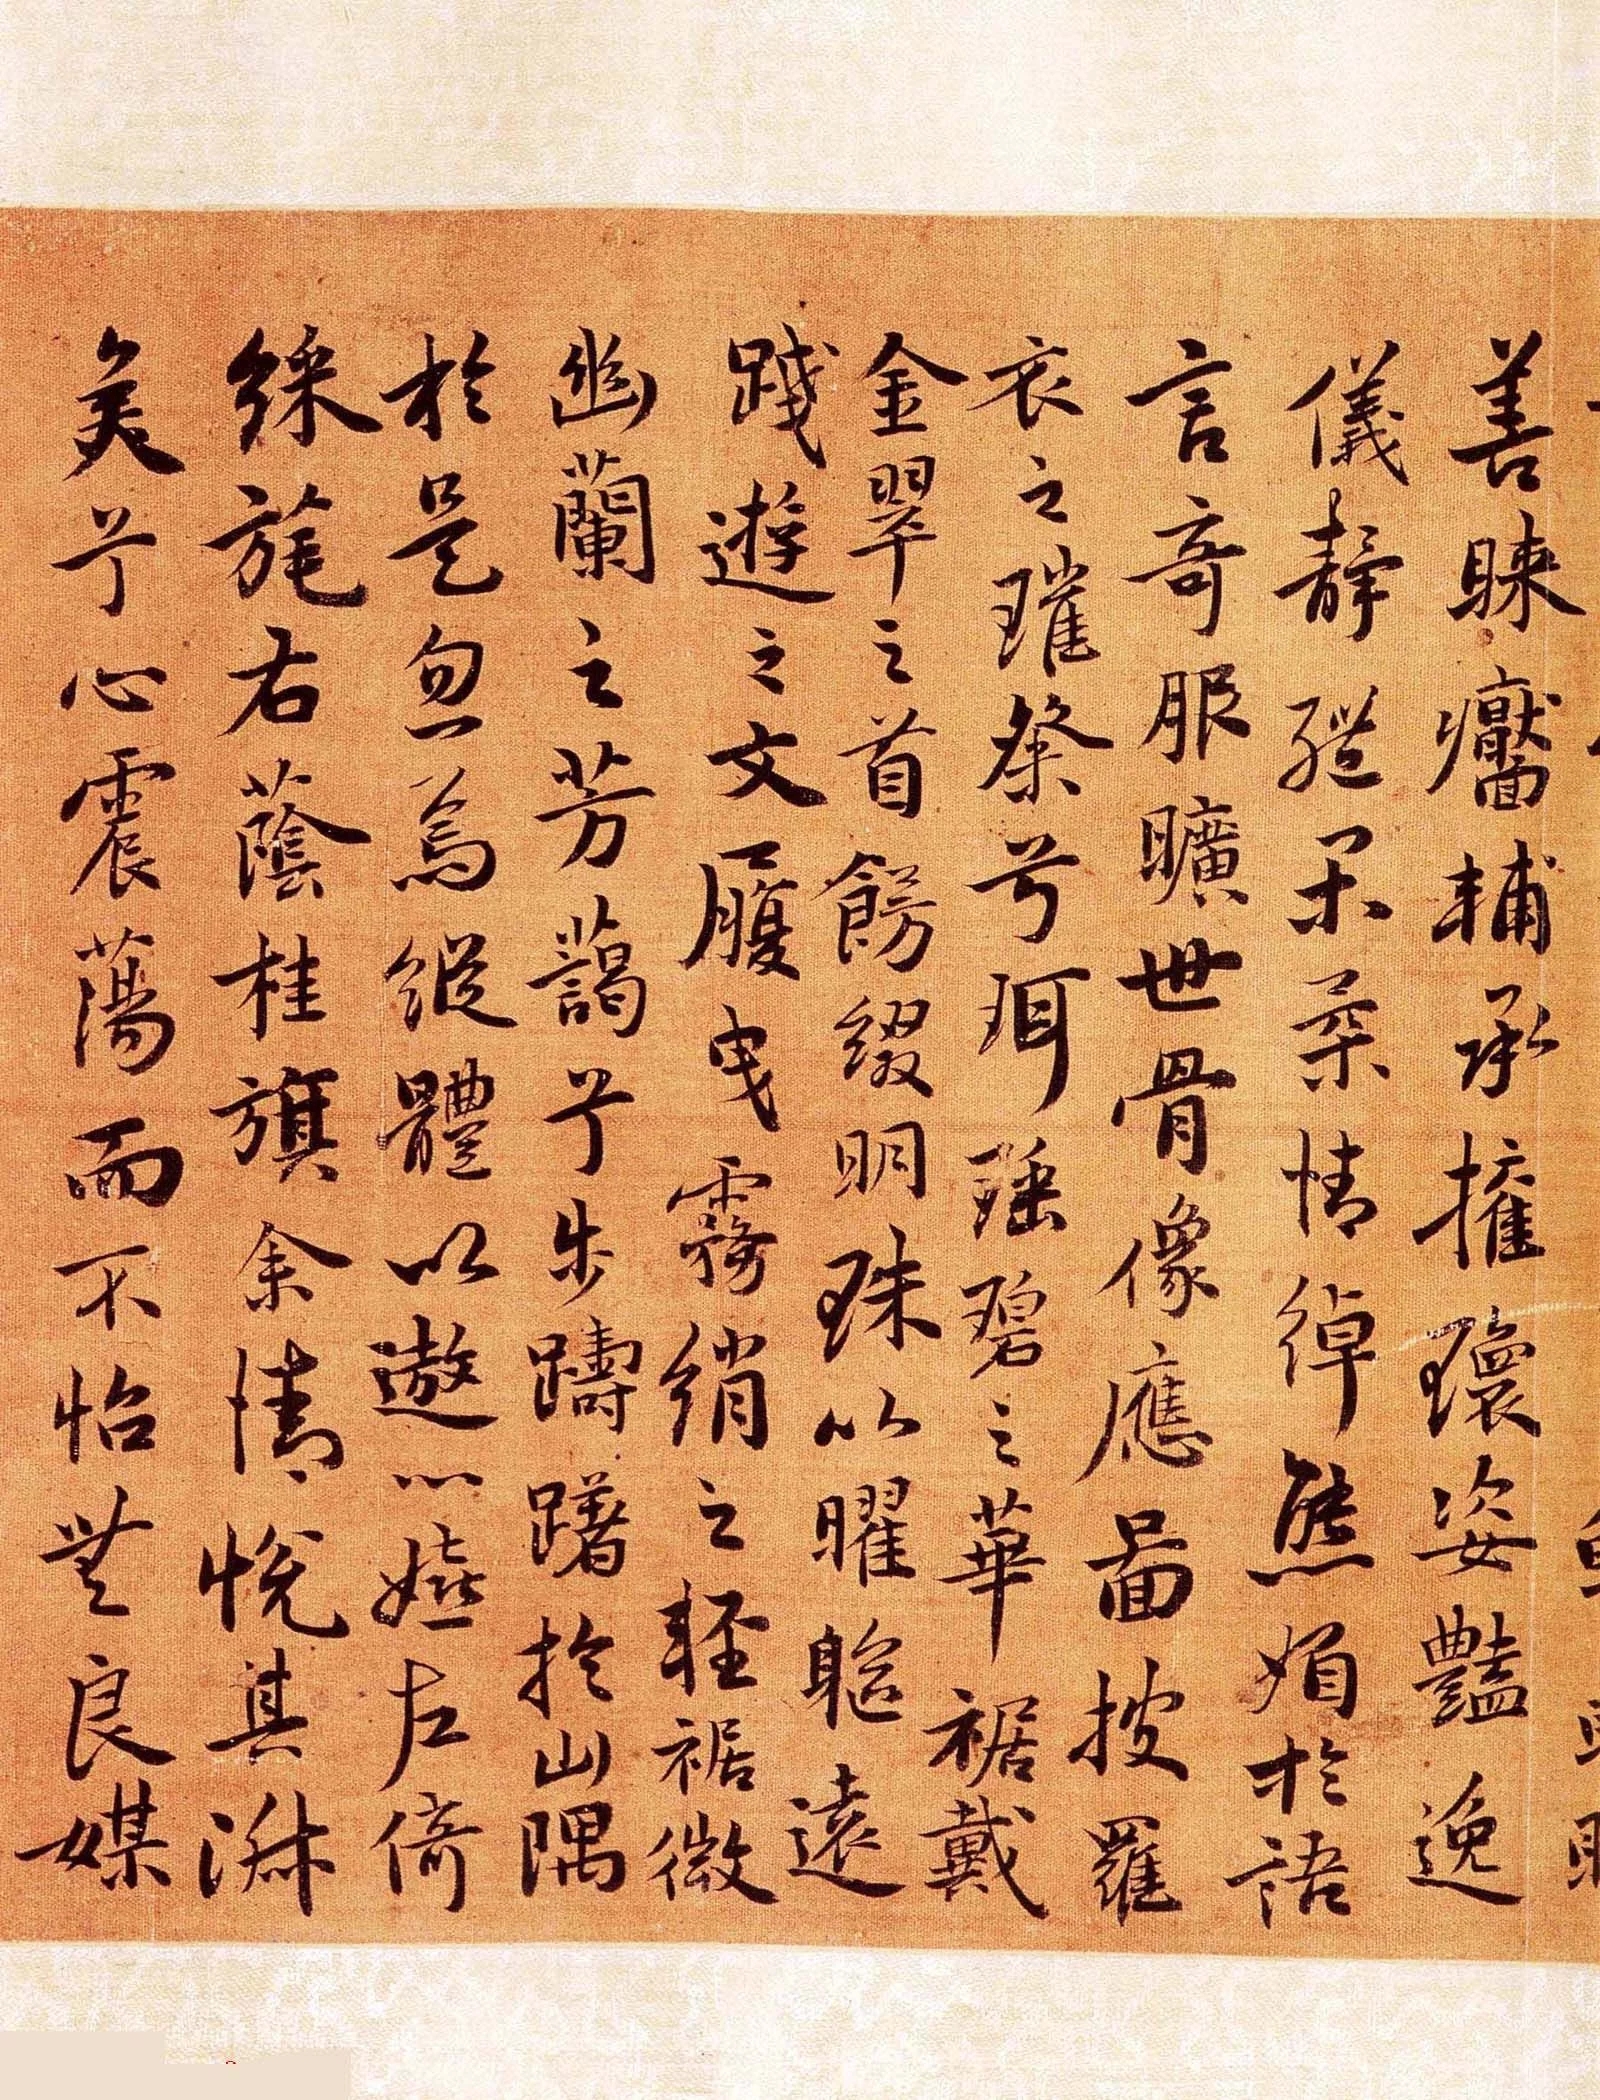 善睞靨輔承權瓌姿豔逸
儀靜體閑柔情綽態媚於語
言奇服曠世骨像應圖披羅
衣之璀粲兮珥瑤碧之華裾戴
金翠之首飾綴明珠以曜軀遠
踐遊之文履曳霧綃之輕裾微
幽蘭之芳藹兮步躊躇於山隅
於是忽焉縱體以遨以嬉左倚
綵旄右蔭桂旗余情悅其淑
美兮心震蕩而不怡無良媒